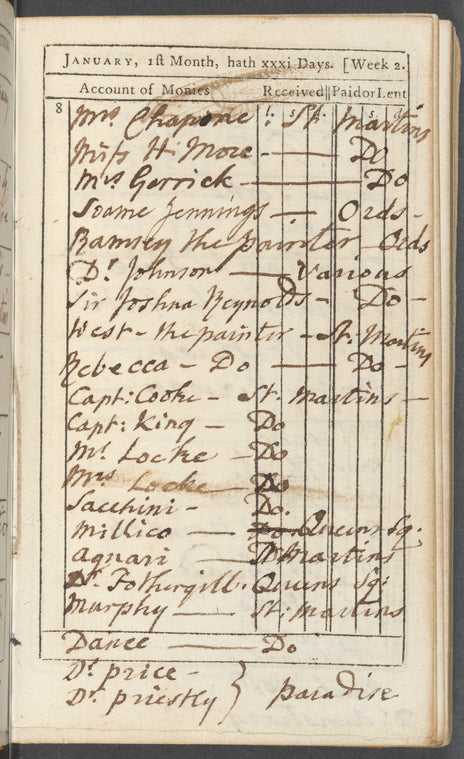 January, 1st Month, hath xxxi Days. [Week 2.
Account of Monies Received Paid or Lent
8 Mrs Chapone : St Martins
l. s. d. l. s. d.
Miss H: More — Do
Mrs Gerrick — Do
Soame Jennings — Ords -
Ramsey the painter — Ords
Dr Johnson — Various
Sir Joshua Reynolds - Do -
West - the painter - St. Martins
Rebecca - Do — Do -
Capt: Cooke - St. Martins -
Capt: King - Do
Mr Locke - Do
Mrs Locke - Do
Sacchini - Do.
Millico — Queens Sq.
Aguari — St Martins
Dr. Fothergill. Queens Sq:
Murphy — St: Martins
Dance — Do
Dr price -
Dr. priestly } paradise